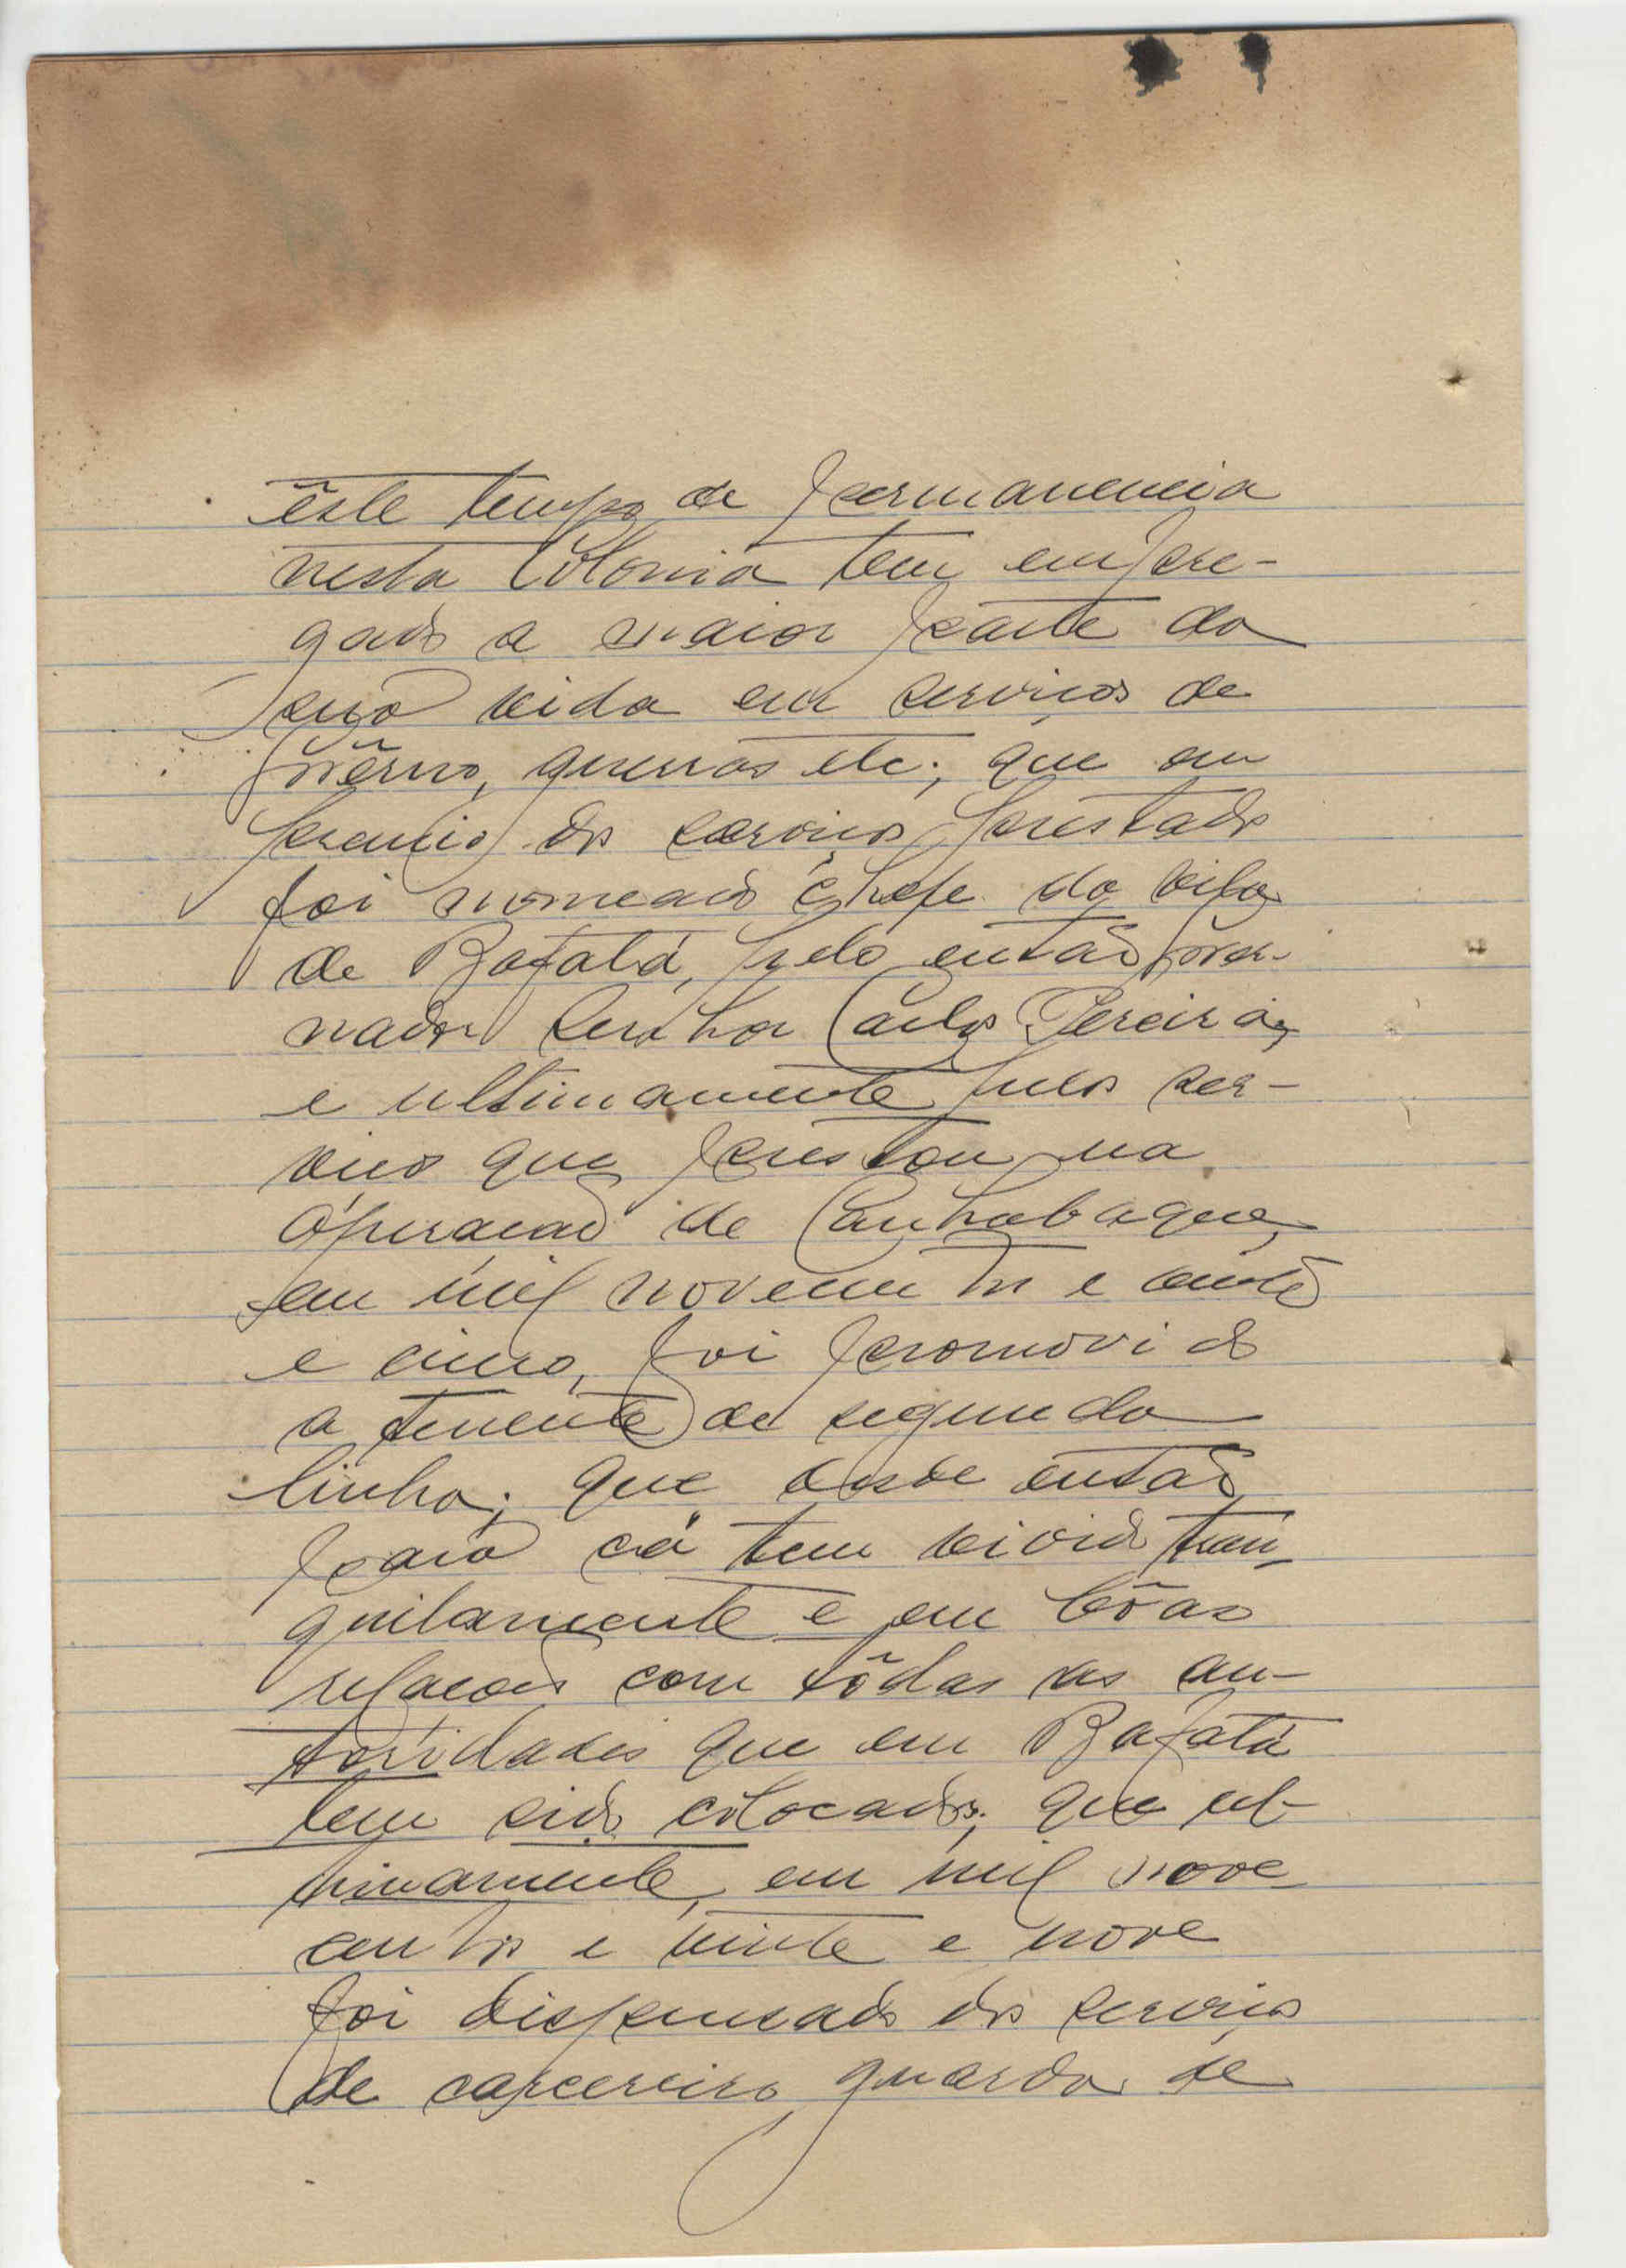 êste tempo de permanencia
nesta Colonia tem empre-
gado a maior parte da
sua vida em serviços de
Govêrno, guerras etc; que em
premio dos serviços prestados
foi nomeado chefe da vila
de Bafatá, pelo então Gover-
nador Senhor Carlos Pereira,
e ultimamente pelos ser-
viços que prestou na
Operação de Canhabaque,
em mil novecentos e vinte
e cinco, foi promovido
a tenente de segunda
linha; que desde então
para cá tem vivido tran-
quilamente e em bôas
relações com tôdas as au-
toridades que em Bafatá
tem sido colocados; que ul-
timamente, em mil nove-
centos e vinte e nove
foi dispensado dos serviços
de carcereiro, guarda de